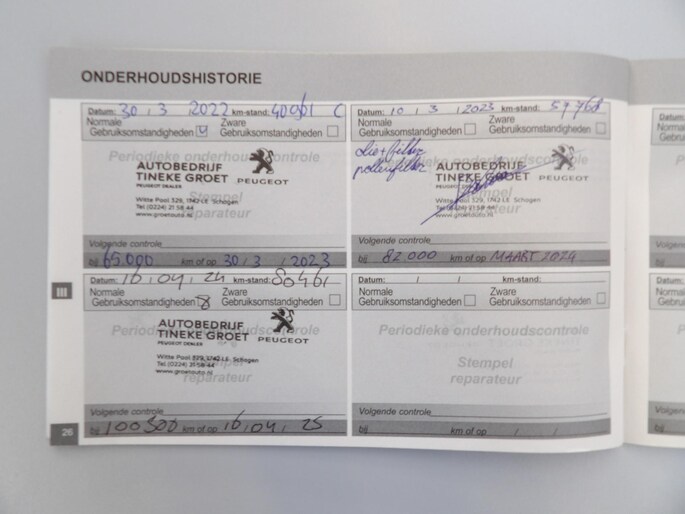 ONDERHOUDSHISTORIE
Datum: 30 / 3 / 2022 km-stand: 40961
Normale Zware
Gebruiksomstandigheden Gebruiksomstandigheden
Periodieke onderhoudscontrole
AUTOBEDRIJF
TINEKE GROET PEUGEOT
PEUGEOT DEALER
Stempel
reparateur
Witte Paal 329, 1742 LE Schagen
Tel.(0224) 21 58 44
www.groetauto.nl
Volgende controle
bij 65.000 km of op 30 / 3 / 2023
Datum: 10 / 3 / 2023 km-stand: 59768
Normale Zware
Gebruiksomstandigheden Gebruiksomstandigheden
olie+filter
pollenfilter
Periodieke onderhoudscontrole
AUTOBEDRIJF
TINEKE GROET PEUGEOT
PEUGEOT DEALER
Stempel
reparateur
Witte Paal 329, 1742 LE Schagen
Tel.(0224) 21 58 44
www.groetauto.nl
Volgende controle
bij 82 000 km of op MAART 2024
III
Datum: 16 / 04 / 24 km-stand: 80461
Normale Zware
Gebruiksomstandigheden Gebruiksomstandigheden
Periodieke onderhoudscontrole
AUTOBEDRIJF
TINEKE GROET PEUGEOT
PEUGEOT DEALER
Stempel
reparateur
Witte Paal 329, 1742 LE Schagen
Tel.(0224) 21 58 44
www.groetauto.nl
Volgende controle
bij 100500 km of op 16 / 04 / 25
Datum: / / km-stand:
Normale Zware
Gebruiksomstandigheden Gebruiksomstandigheden
Periodieke onderhoudscontrole
Stempel
reparateur
Volgende controle
bij km of op / /
26